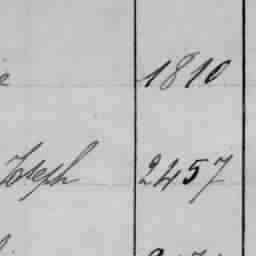 e 1810
Joseph 2457